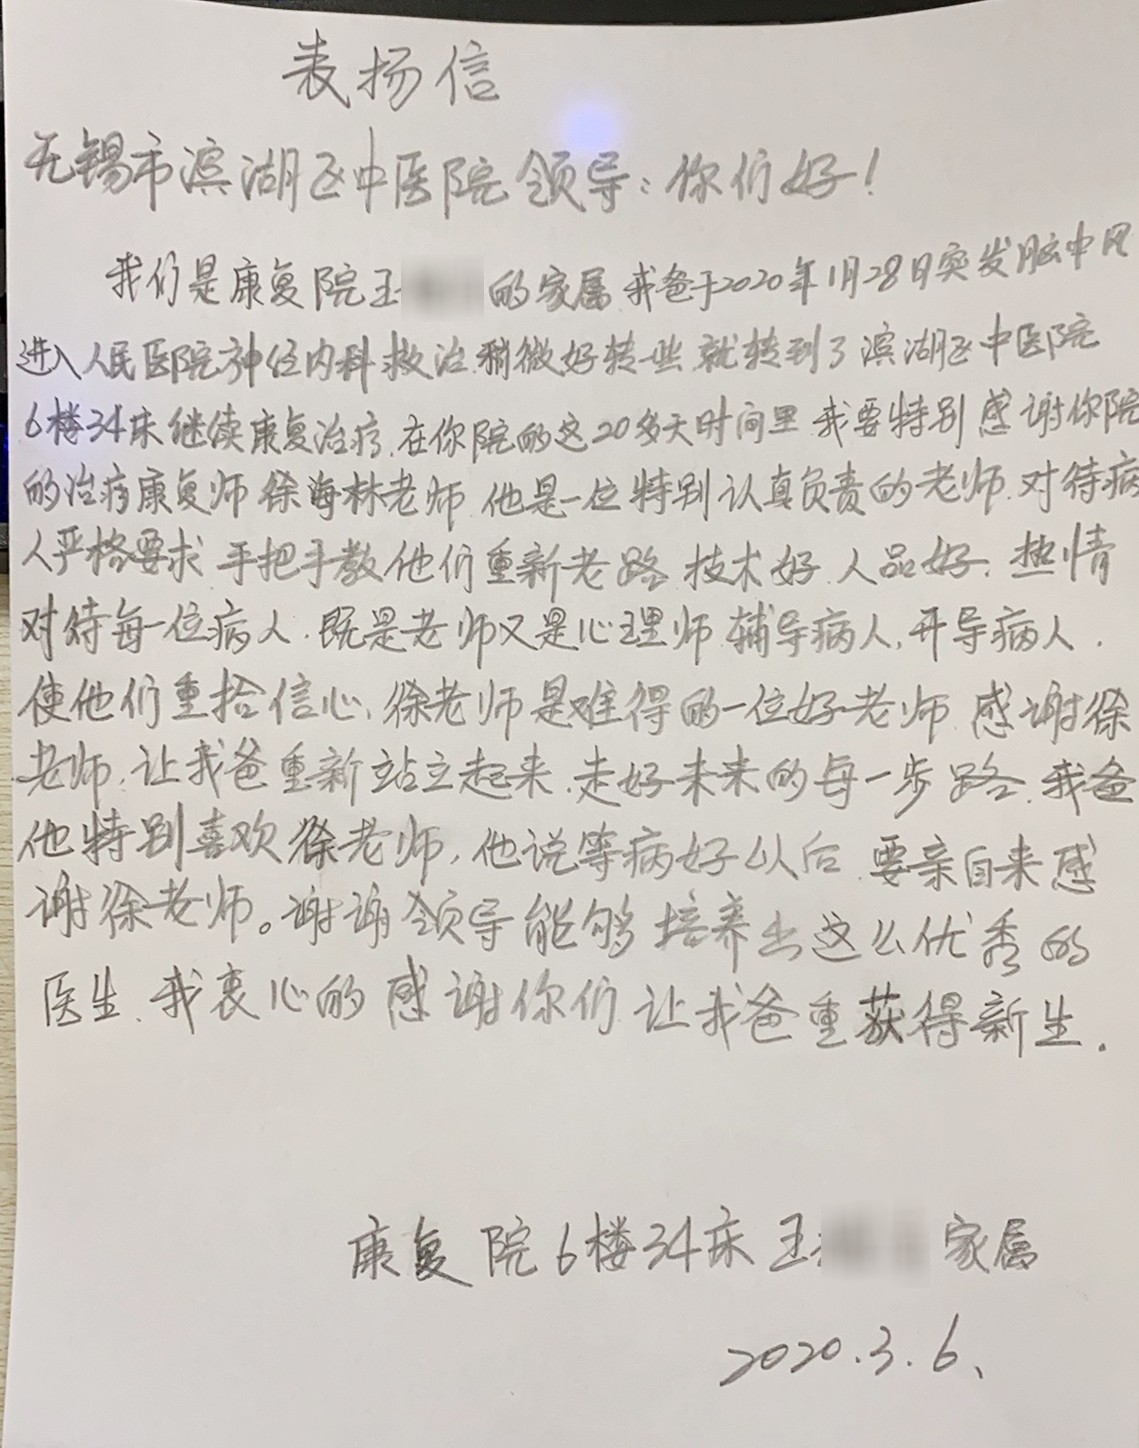 表扬信
无锡市滨湖区中医院领导：你们好！
我们是康复院王 的家属 我爸于2020年1月28日突发脑中风
进入人民医院神经内科救治.稍微好转一些 就转到了滨湖区中医院
6楼34床继续康复治疗.在你院的这20多天时间里 我要特别感谢你院
的治疗康复师徐海林老师 他是一位特别认真负责的老师.对待病
人严格要求 手把手教他们重新老路 技术好.人品好.热情
对待每一位病人.既是老师又是心理师 辅导病人,开导病人.
使他们重拾信心,徐老师是难得的一位好老师 感谢徐
老师.让我爸重新站立起来.走好未来的每一步路.我爸
他特别喜欢徐老师,他说等病好以后 要亲自来感
谢徐老师。谢谢领导能够培养出这么优秀的
医生.我衷心的感谢你们 让我爸重获得新生.
康复院6楼34床王 家属
2020.3.6、